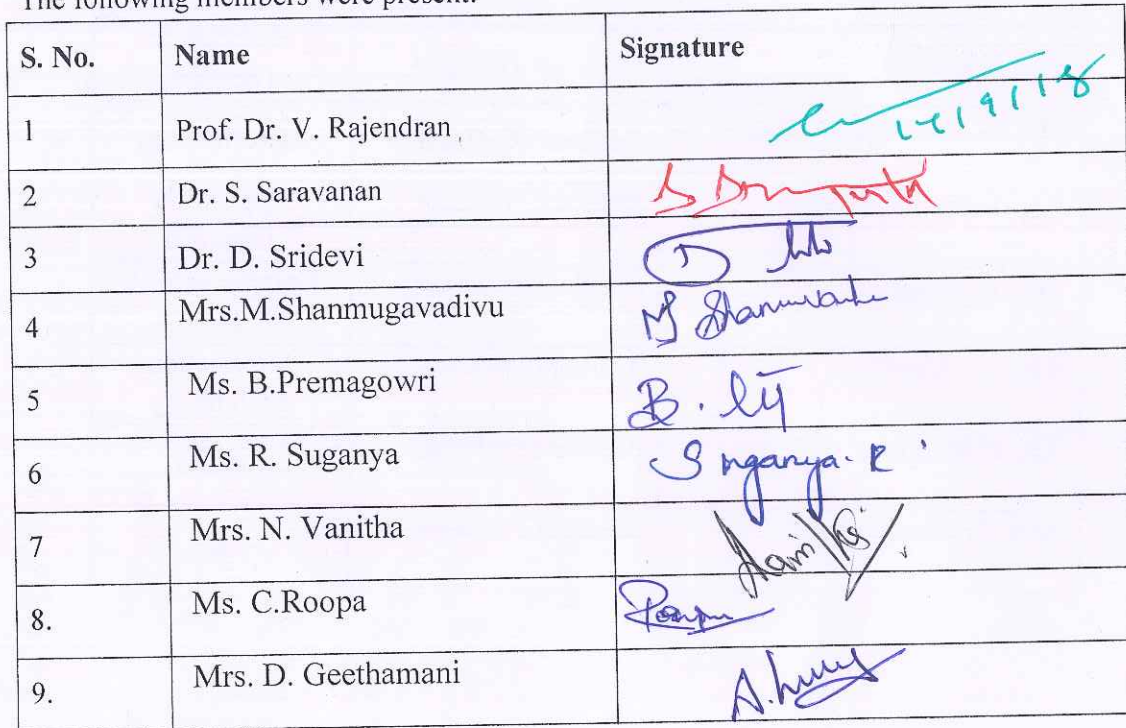 The following members were present:
S. No. Name Signature
1 Prof. Dr. V. Rajendran 14/9/18
2 Dr. S. Saravanan
3 Dr. D. Sridevi D
4 Mrs.M.Shanmugavadivu M
5 Ms. B.Premagowri B.
6 Ms. R. Suganya Suganya. R
7 Mrs. N. Vanitha
8. Ms. C.Roopa
9. Mrs. D. Geethamani